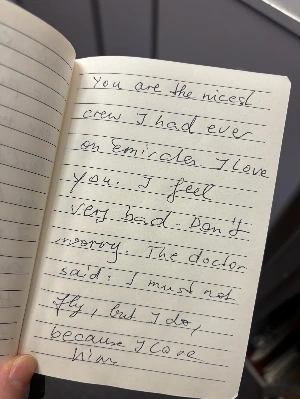 You are the nicest
crew I had ever
on emirates I love
you. I feel
very bad. Don't
worry. The doctor
said: I must not
fly, but I do,
because I love
him